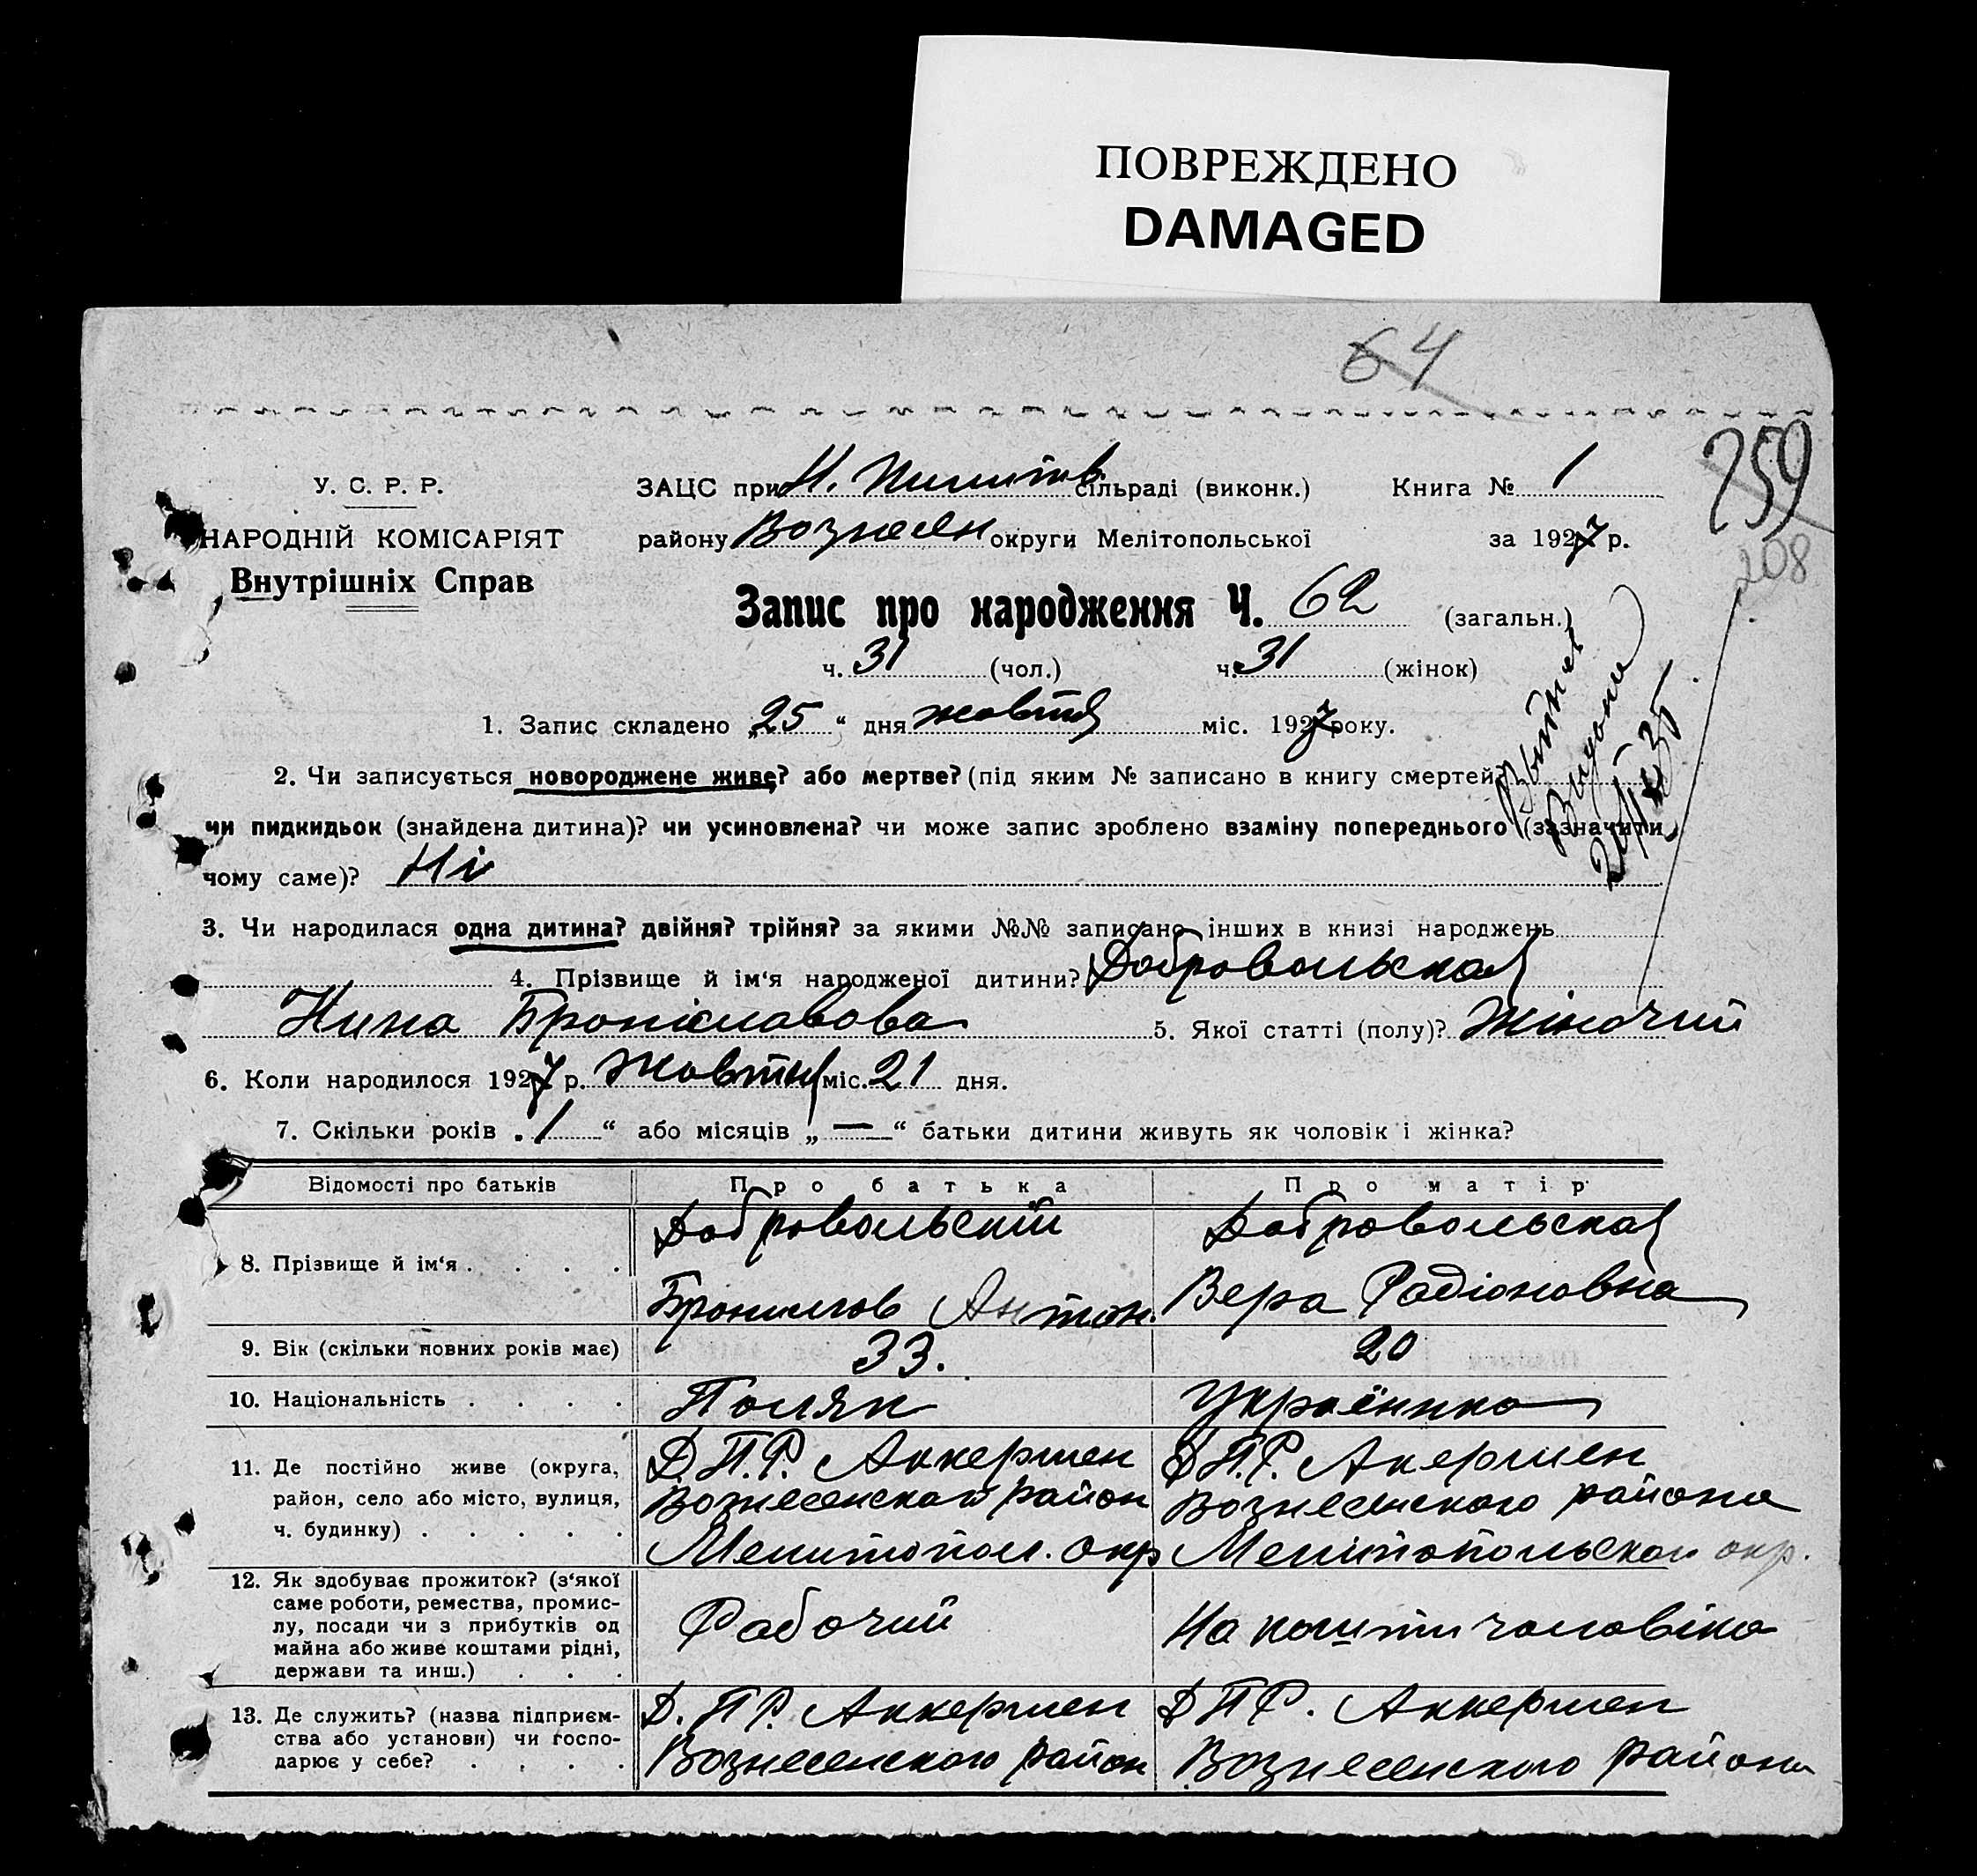 ПОВРЕЖДЕНО
DAMAGED
64
259
208
У. С. Р. Р.
НАРОДНІЙ КОМІСАРІЯТ
Внутрішніх Справ
ЗАЦС при Н. сільраді (виконк.) Книга № 1
району Вознесен округи Мелітопольської за 1927 р.
Запис про народження Ч. 62 (загальн.)
ч. 31 (чол.) ч. 31 (жінок)
1. Запис складено „25“ дня жовтня міс. 1927 року.
2. Чи записується новороджене живе? або мертве? (під яким № записано в книгу смертей)
чи пидкидьок (знайдена дитина)? чи усиновлена? чи може запис зроблено взаміну попереднього (зазначити,
чому саме)? Ні
3. Чи народилася одна дитина? двійня? трійня? за якими №№ записано інших в книзі народжень
4. Прізвище й ім‘я народженої дитини? Добровольская
Нина Броніславова 5. Якої статті (полу)? Жіночий
6. Коли народилося 1927 р. Жовтня міс. 21 дня.
7. Скільки років „1“ або місяців „—“ батьки дитини живуть як чоловік і жінка?
Відомості про батьків Про батька Про матір
8. Прізвище й ім‘я . . . . Добровольскій Добровольская
Антон. Вера Радіоновна
9. Вік (скільки повних років має) 33. 20
10. Національність . . . . Поляк Украёнка
11. Де постійно живе (округа, Д.П.Р. Аккермен Д П.Р. Акермен
район, село або місто, вулиця, район Вознесенского района
ч. будинку) . . . . . Мелитопол. окр Мелітопольской окр.
12. Як здобуває прожиток? (з‘якої
саме роботи, ремества, промис-
лу, посади чи з прибутків од Рабочий На кошти чоловіка
майна або живе коштами рідні,
держави та инш.) . . .
13. Де служить? (назва підприєм- Д. П Р. Аккермен Д П Р. Аккермен
ства або установи) чи госпо- Вознесенского район Вознесенского района
дарює у себе? . . . .